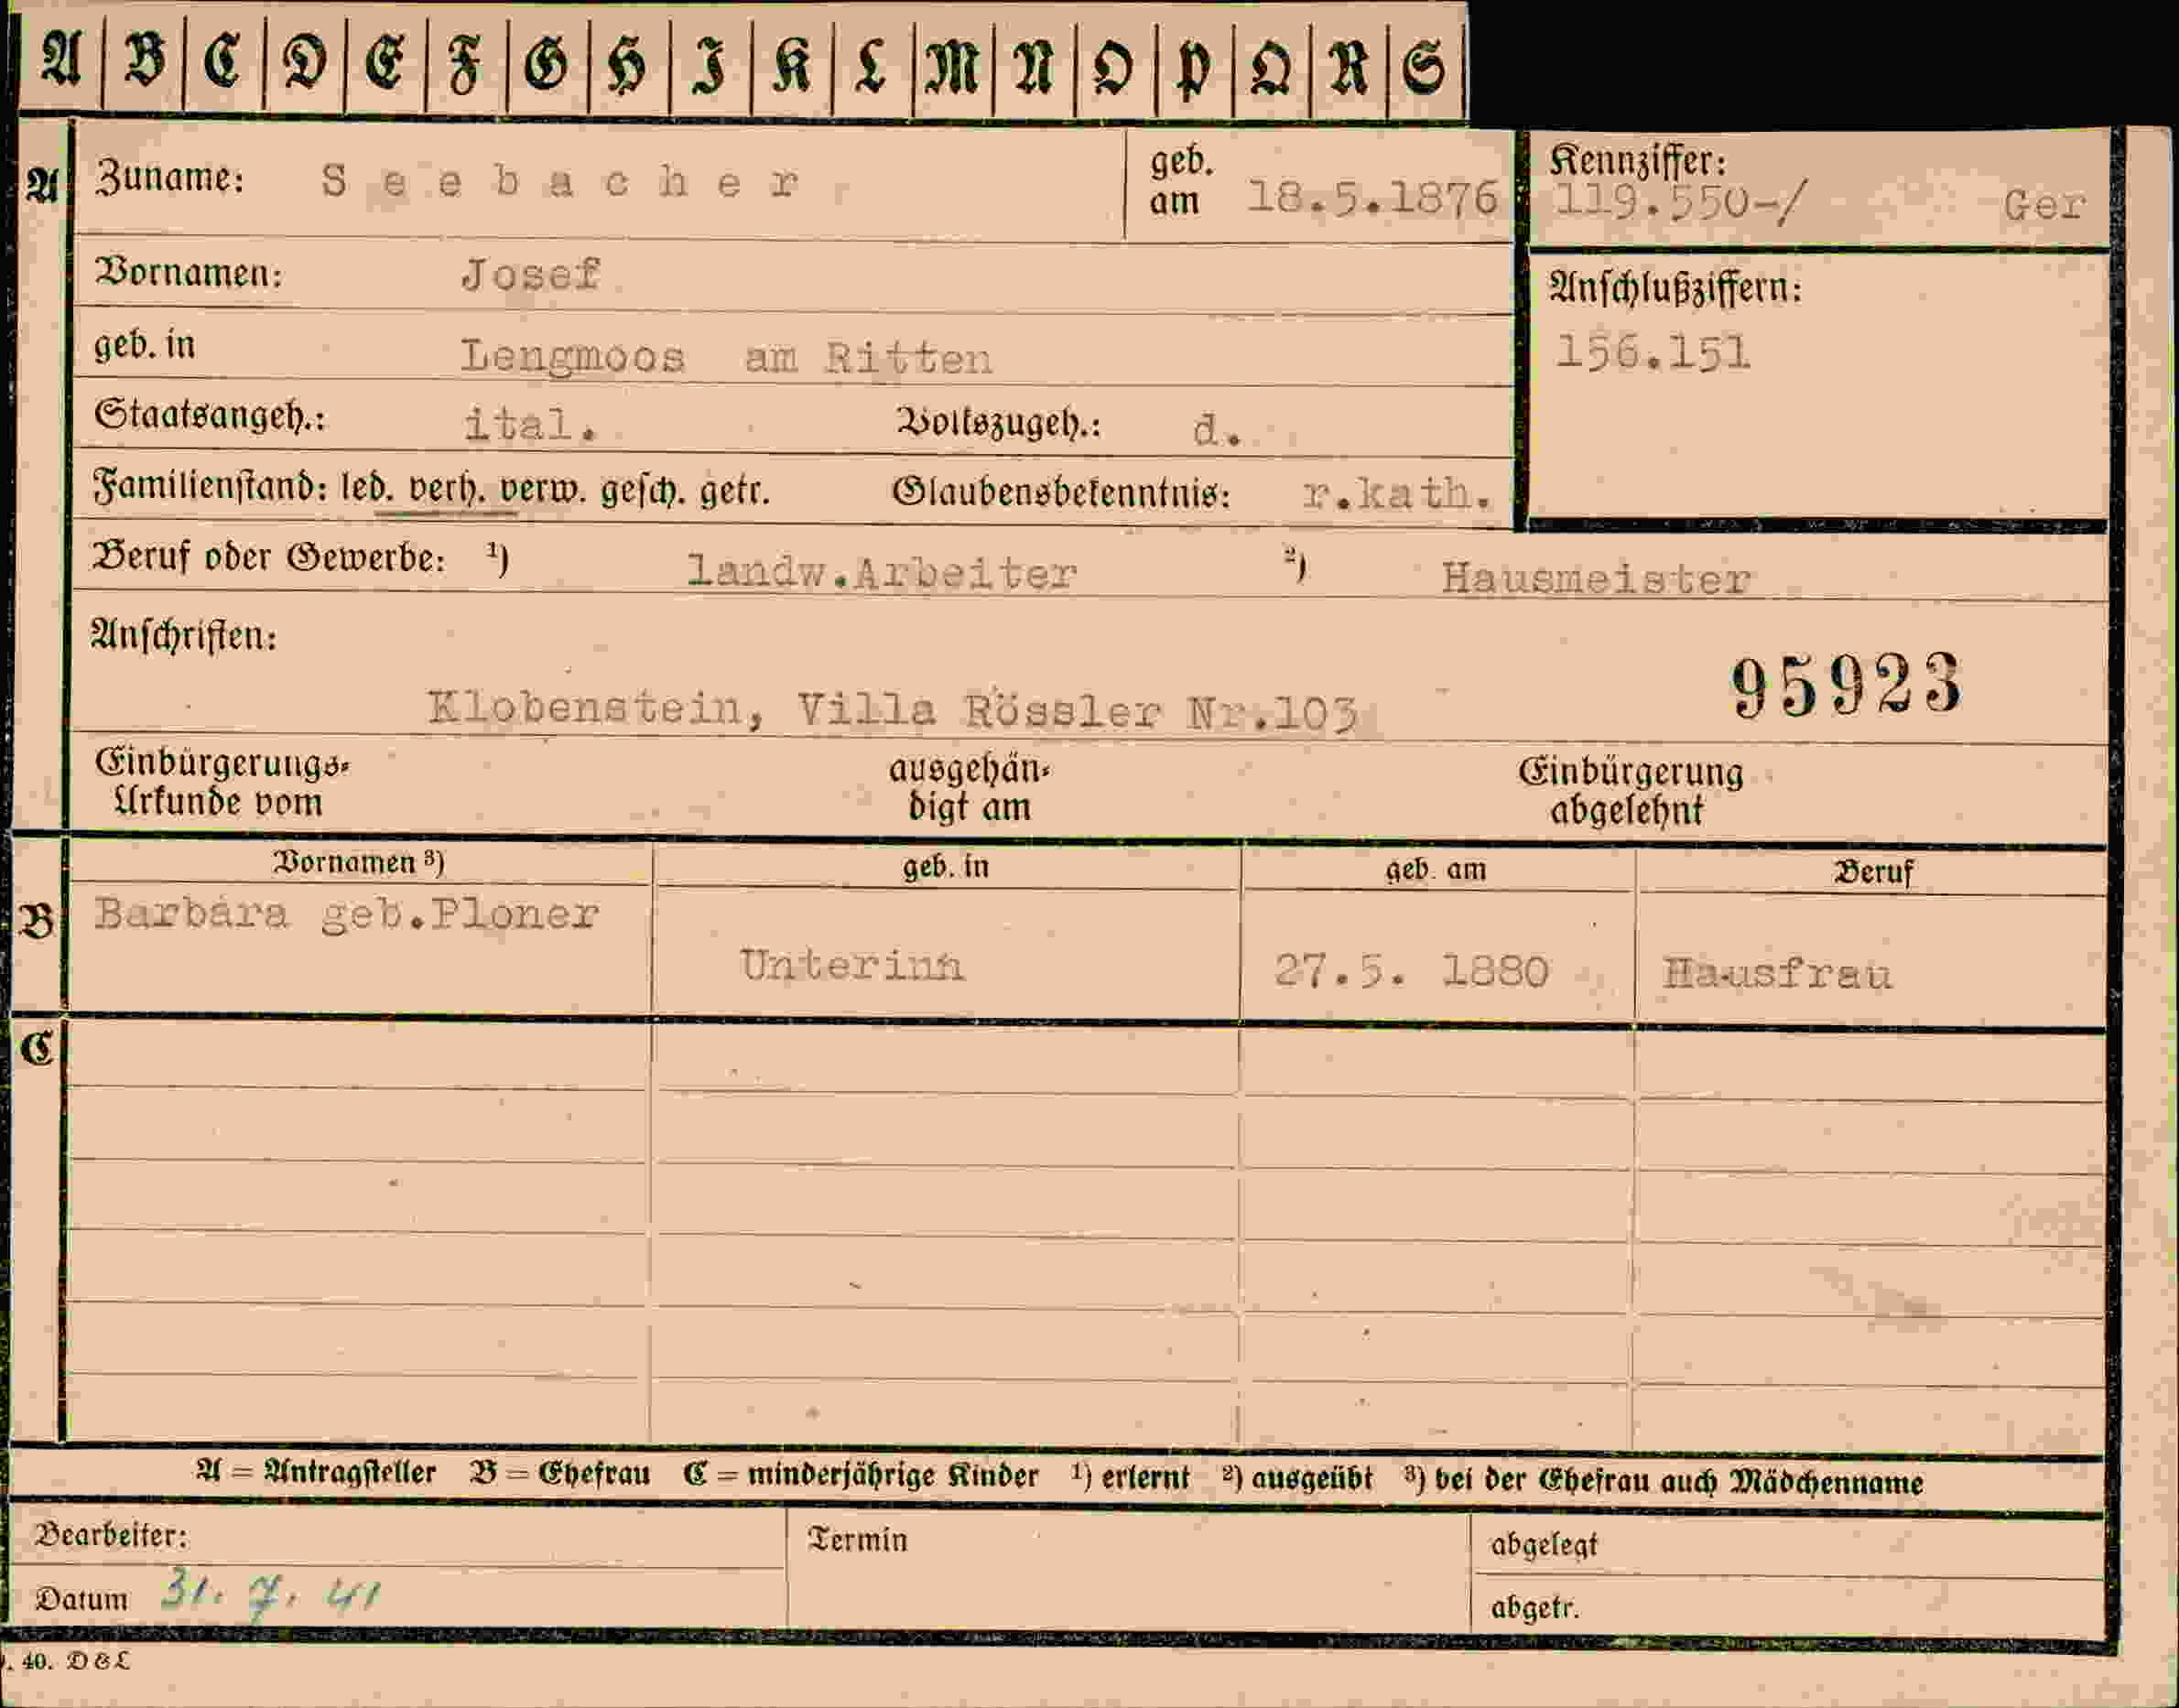 A B C D E F G H I K L M N O P Q R S
A Zuname: Seebacher geb. am 18.5.1876
Kennziffer: 119.550-/ Ger
Vornamen: Josef
Anschlußziffern:
156.151
geb. in Lengmoos am Ritten
Staatsangeh.: ital. Volkszugeh.: d.
Familienstand: led. verh. verw. gesch. getr. Glaubensbekenntnis: r.kath.
Beruf oder Gewerbe: ¹) landw.Arbeiter ²) Hausmeister
Anschriften:
Klobenstein, Villa Rössler Nr.103 95923
Einbürgerungs- ausgehän- Einbürgerung
Urkunde vom digt am abgelehnt
Vornamen ³) geb. in geb. am Beruf
B Barbara geb.Ploner
Unterinn 27.5. 1880 Hausfrau
C
A = Antragsteller B = Ehefrau C = minderjährige Kinder ¹) erlernt ²) ausgeübt ³) bei der Ehefrau auch Mädchenname
Bearbeiter: Termin abgelegt
Datum 31. 7. 41 abgetr.
. 40. D&L